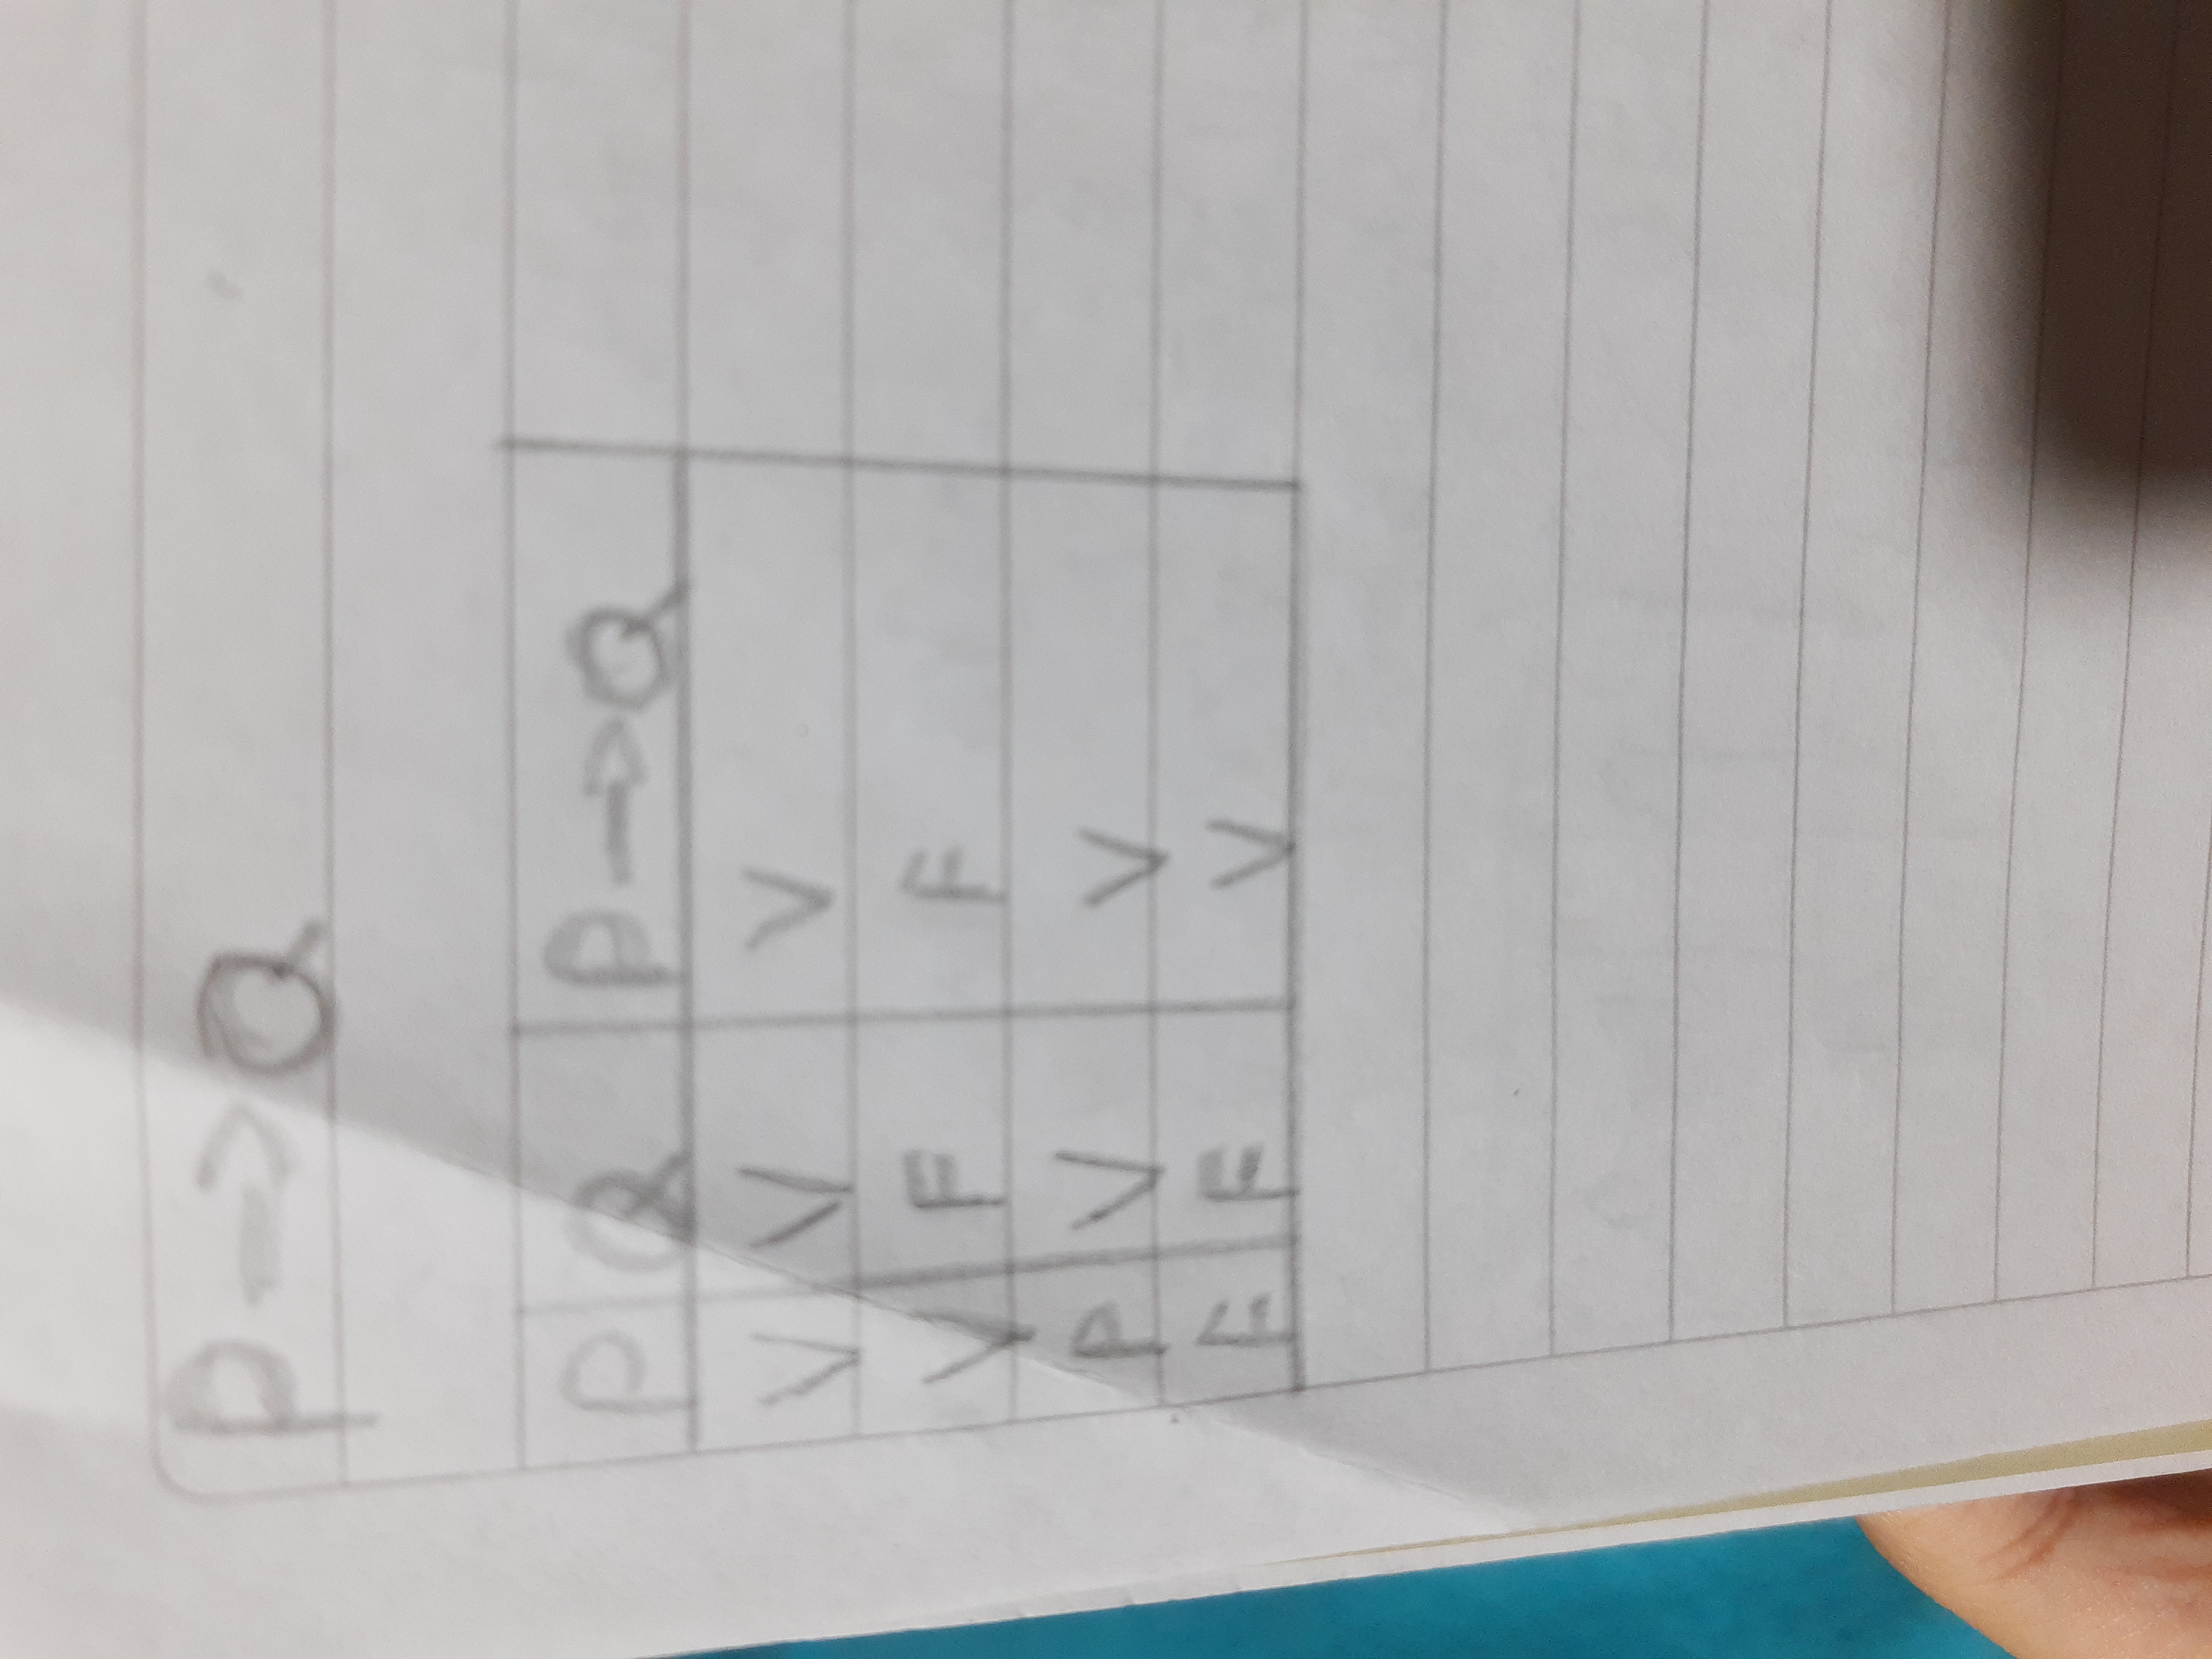 P → Q
P Q P → Q
V V V
V F F
P V V
F F V